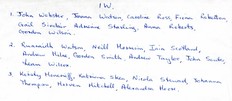 1W.
1. John Webster, Joanna Watson, Caroline Ross, Fiona Robertson,
Gail Sinclair Adrienne Sterling, Anna Roberts,
Gordon Wilson.
2. Gwenneth Watson, Neill Morrison, Iain Scotland,
Andrew Milne, Gordon Smith, Andrew Taylor, John Souter,
Kevin Wilson.
3. Kirsty Moncrieff, Katrina Skea, Nicola Stewart, Johanna
Thompson, Maureen Mitchell, Alexander Moore.